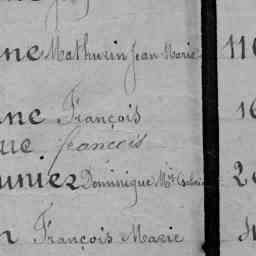 ne Mathurin Jean Marie 116
ne François 16
ue francois
unier Dominique Mie 20
n François Marie